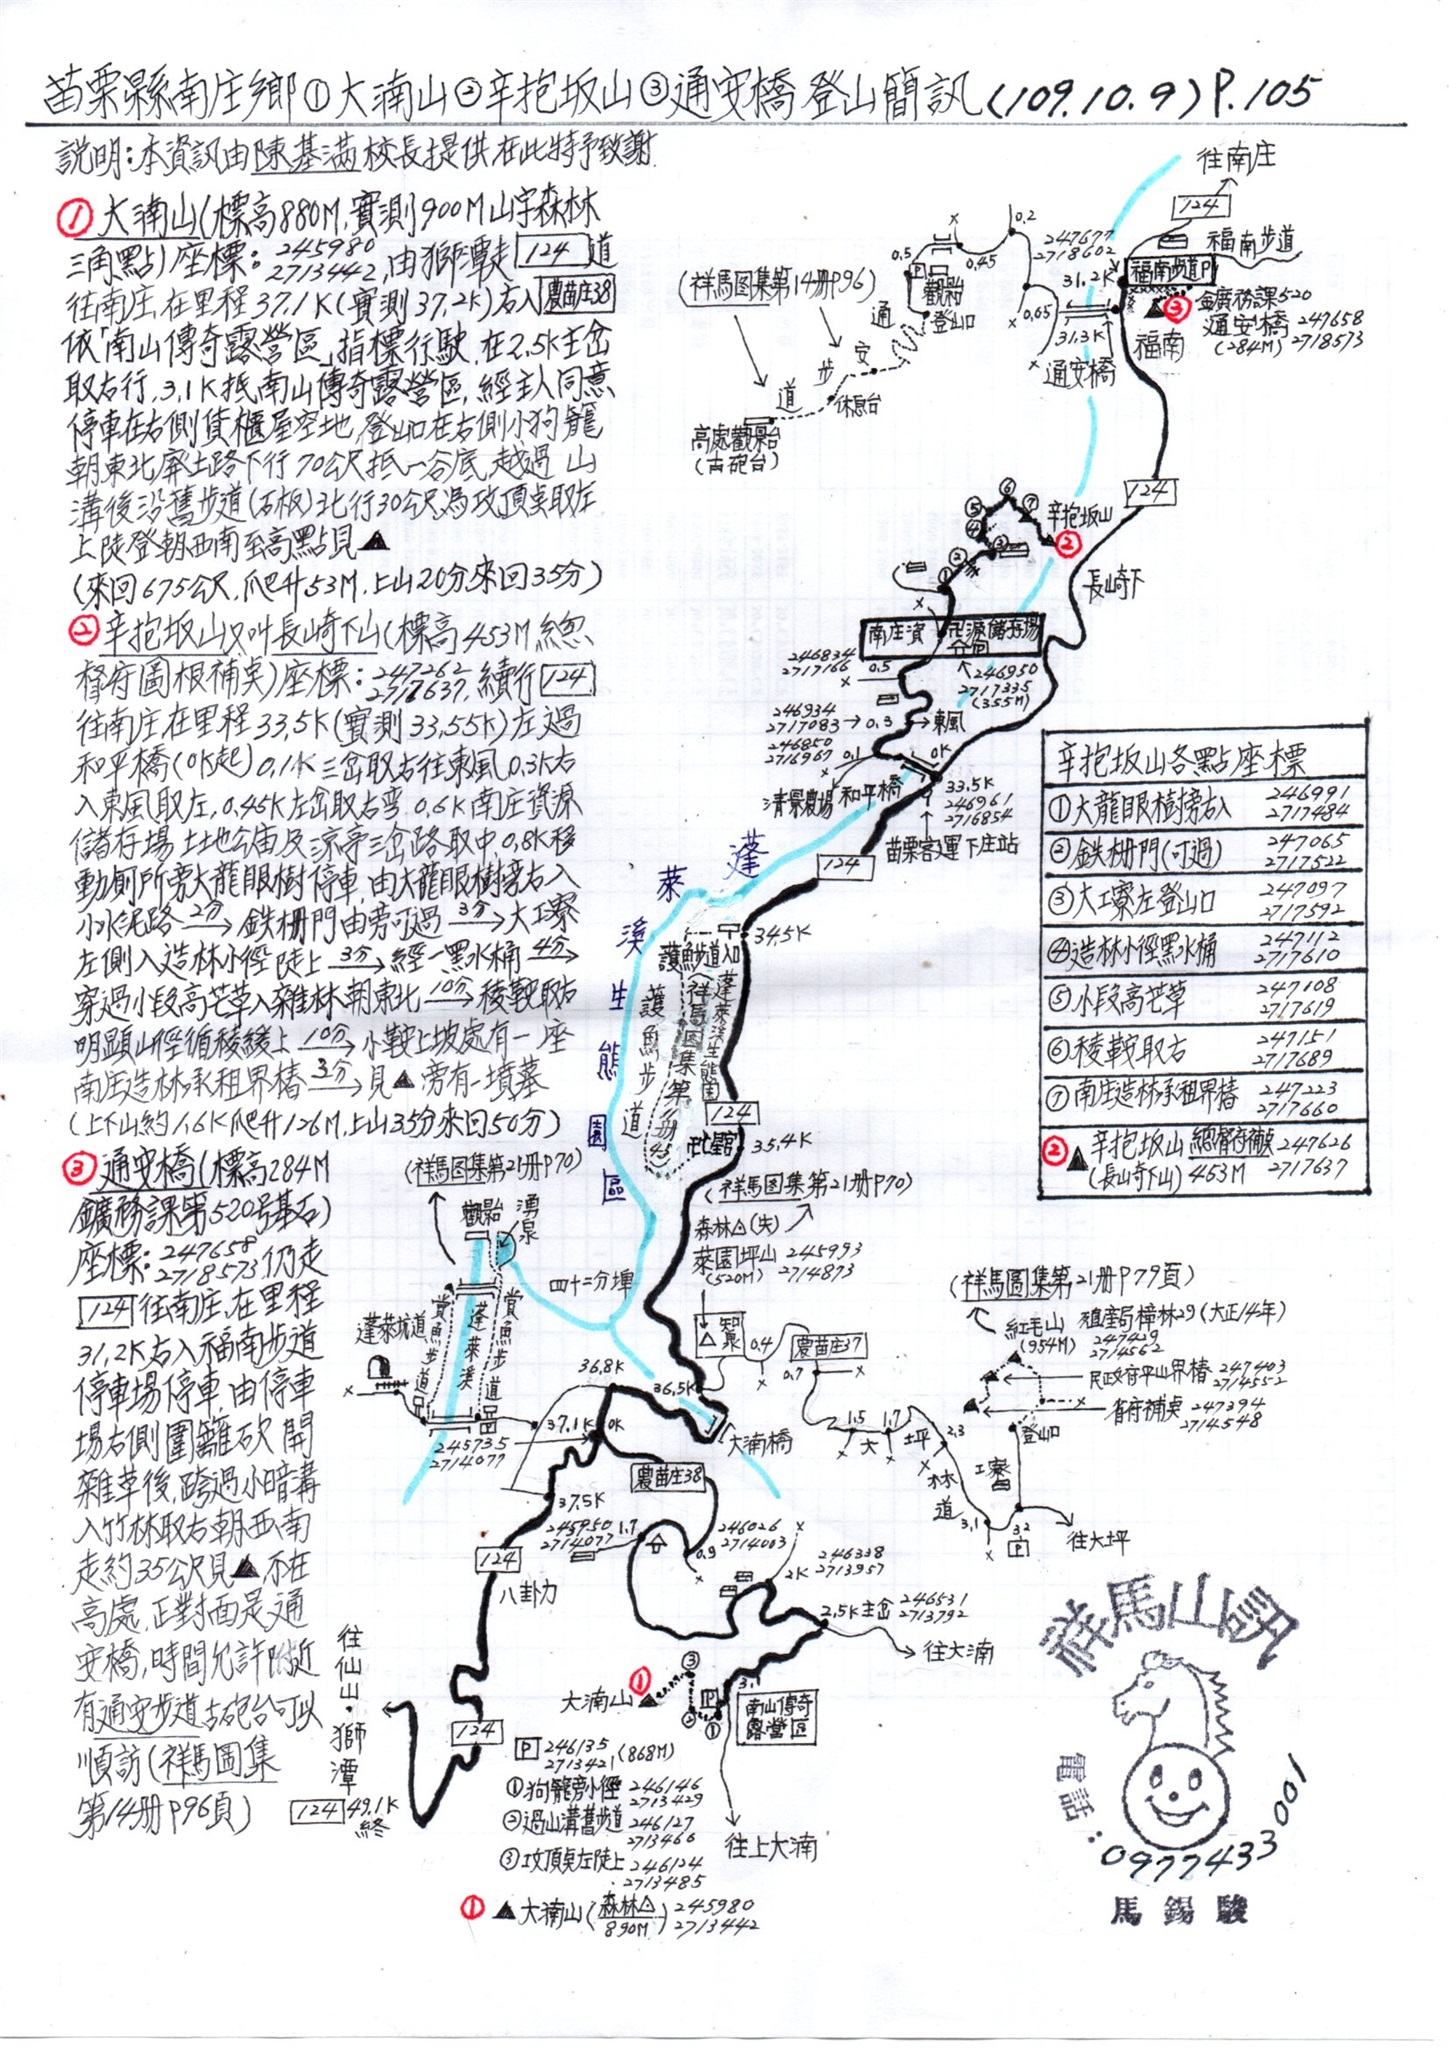 苗栗縣南庄鄉①大湳山②辛抱坂山③通安橋登山簡訊(109.10.9)P.105
說明:本資訊由陳基滿校長提供在此特予致謝
① 大湳山(標高880M,實測900M山字森林
三角點)座標:245980 2713442,由獅潭走124道
往南庄,在里程37.1K(實測37.2K)右入農苗庄38
依「南山傳奇露營區」指標行駛,在2.5K主岔
取右行,3.1K抵南山傳奇露營區,經主人同意
停車在右側貨櫃屋空地,登山口在右側小狗籠
朝東北廢土路下行70公尺抵一谷底,越過山
溝後沿舊步道(石板)北行30公尺為攻頂點取左
上陡登朝西南至高點見▲
(來回675公尺,爬升53M,上山20分,來回35分)
② 辛抱坂山又叫長崎下山(標高453M總
督府圖根補點)座標:247262 2717637,續行124
往南庄在里程33.5K(實測33.55K)左過
和平橋(0K起)0.1K三岔取右往東風0.3K右
入東風取左,0.45K左岔取右彎0.6K南庄資源
儲存場土地公庙及涼亭三岔路取中0.8K移
動廁所旁大龍眼樹停車,由大龍眼樹旁右入
小水泥路 2分→ 鉄柵門由旁可過 3分→ 大工寮
左側入造林小徑陡上 3分→ 經一黑水桶 4分→
穿過小段高芒草入雜林朝東北 10分→ 稜鞍取右
明顯山徑循稜緩上 10分→ 小鞍上坡處有一座
南庄造林承租界樁 3分→ 見▲旁有一墳墓
(上下山約1.6K爬升126M,上山35分來回50分)
③ 通安橋(標高284M
鑛務課第520号基石)
座標:247658 2718573,仍走
124往南庄,在里程
31.2K右入福南步道
停車場停車,由停車
場右側圍籬砍開
雜草後,跨過小暗溝
入竹林取右朝西南
走約35公尺見▲不在
高處,正對面是通
安橋,時間允許附近
有通安步道古砲台可以
順訪(祥馬圖集
第14册P96頁)
往南庄
124
福南步道
福南步道P
247677
2718602
31.2K
③ 鑛務課520
通安橋 247658
(284M) 2718573
福南
31.3K
通安橋
0.2
0.45
0.5
0.65
P
觀景台
登山口
(祥馬图集第14册P96)
通安步道
休息台
高處觀景台
(古砲台)
124
長崎下
辛抱坂山
②
南庄資源儲存場
246950
2717335
(355M)
246834
2717166
0.5
246934
2717083→0.3→東風
246850
2716967
0.1
0K
清景農場
和平橋
33.5K
246961
2716854
苗栗客運下庄站
124
蓬萊溪生態園區
34.5K
護魚步道入口
蓬萊溪生態園
護魚步道
(祥馬图集第11册P43)
124
七星宮
35.4K
(祥馬图集第21册P70)
(祥馬图集第21册P70)
觀景台
湧泉
四十二分埤
賞魚步道
蓬萊溪
賞魚步道
蓬萊坑道
245735
2714077
森林△(失)
菜園坪山 245993
(520M) 2714873
0.4
農苗庄37
0.7
1.5
1.7
2.3
大坪林道
3.1
3.2
P
工寮
登山口
往大坪
(祥馬圖集第21册P79頁)
紅毛山
(954M)
殖產局樟林29(大正14年)
247429
2714562
民政府平山界樁 247403 2714552
省府補點 247394 2714548
36.5K
36.8K
大湳橋
37.1K
0K
37.5K
農苗庄38
245950
2714077
1.7
0.9
246026
2714003
2K
246338
2713957
2.5K主岔 246531 2713792
往大湳
124
八卦力
往仙山·獅潭
124
124 49.1K終
大湳山
①
3.1
P
南山傳奇露營區
往上大湳
P 246135 2713421 (868M)
①狗籠旁小徑 246146 2713429
②過山溝舊步道 246127 2713460
③攻頂點左陡上 246124 2713485
① ▲大湳山(森林△ 890M) 245980 2713442
辛抱坂山各點座標
①大龍眼樹旁右入 246991 2717484
②鉄柵門(可過) 247065 2717522
③大工寮左登山口 247097 2717592
④造林小徑黑水桶 247112 2717610
⑤小段高芒草 247108 2717619
⑥稜鞍取右 247151 2717689
⑦南庄造林承租界樁 247223 2717660
② ▲辛抱坂山 總督府補點 247626
(長山崎下山) 453M 2717637
祥馬山訊
電話:0977433001
馬錫駿